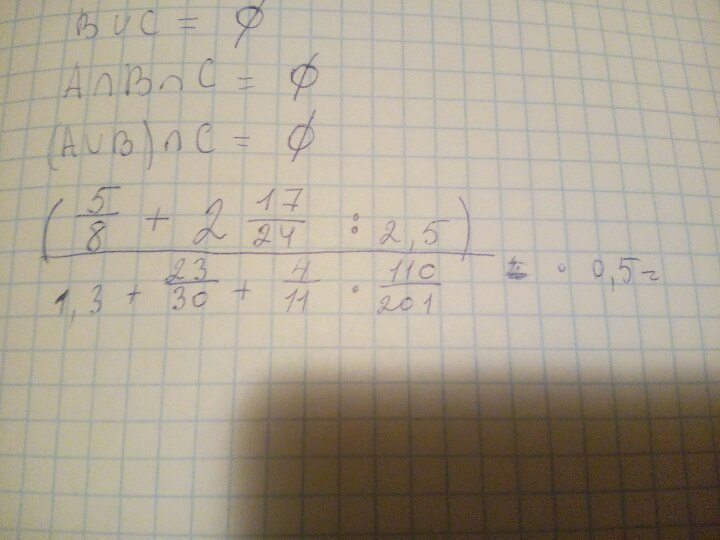 B ∪ C = ∅
A ∩ B ∩ C = ∅
(A ∪ B) ∩ C = ∅
( 5/8 + 2 17/24 : 2,5 )
1,3 + 23/30 + 4/11 · 110/201
· 0,5 =